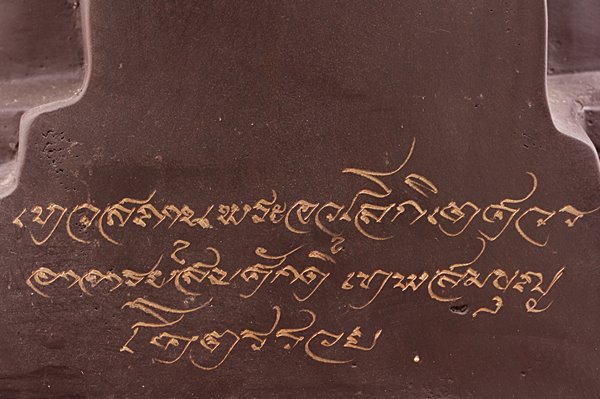 เทวสถานพระอวโลกิเตศวร
อาจารย์สมศักดิ์ เทพสมบุญ
โคตรรวย